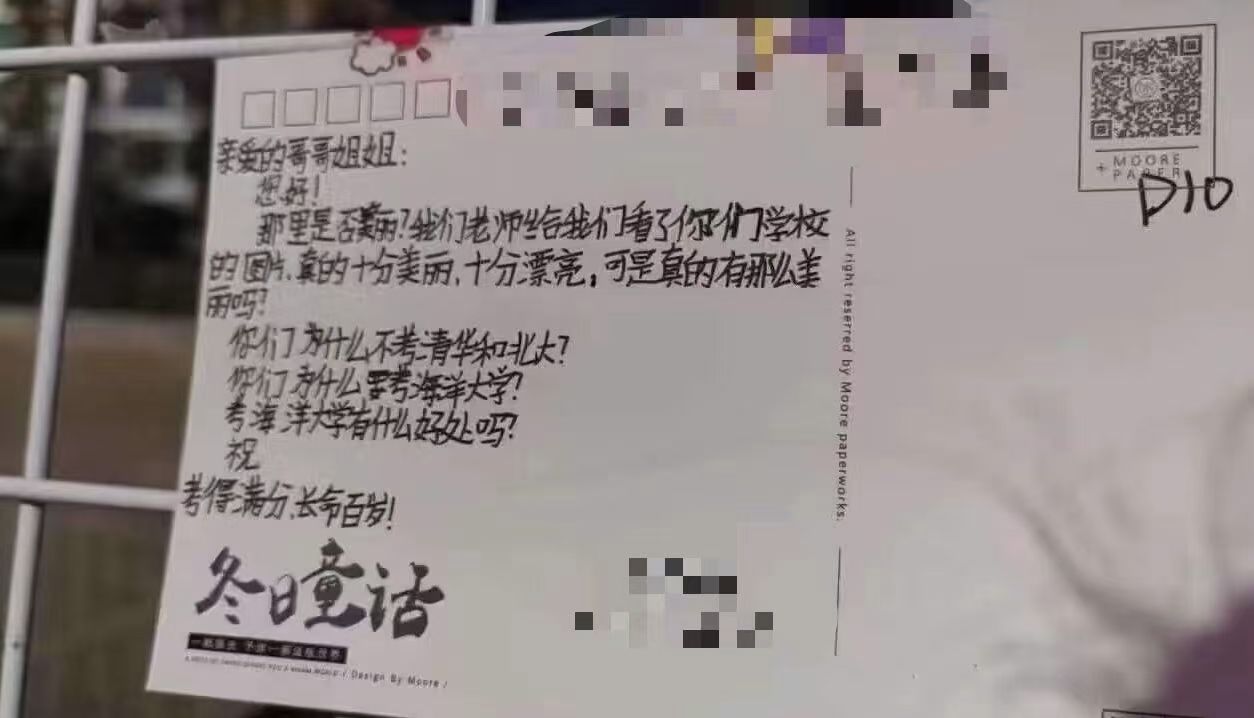 亲爱的哥哥姐姐:
您好!
那里是否美丽?我们老师给我们看了你们学校
的图片、真的十分美丽、十分漂亮,可是真的有那么美
丽吗?
你们为什么不考清华和北大?
你们为什么要考海洋大学?
考海洋大学有什么好处吗?
祝
考得满分、长命百岁!
冬日童话
/ Design By Moore /
All right reserred by Moore paperworks.
+ MOORE
PAPER
D10